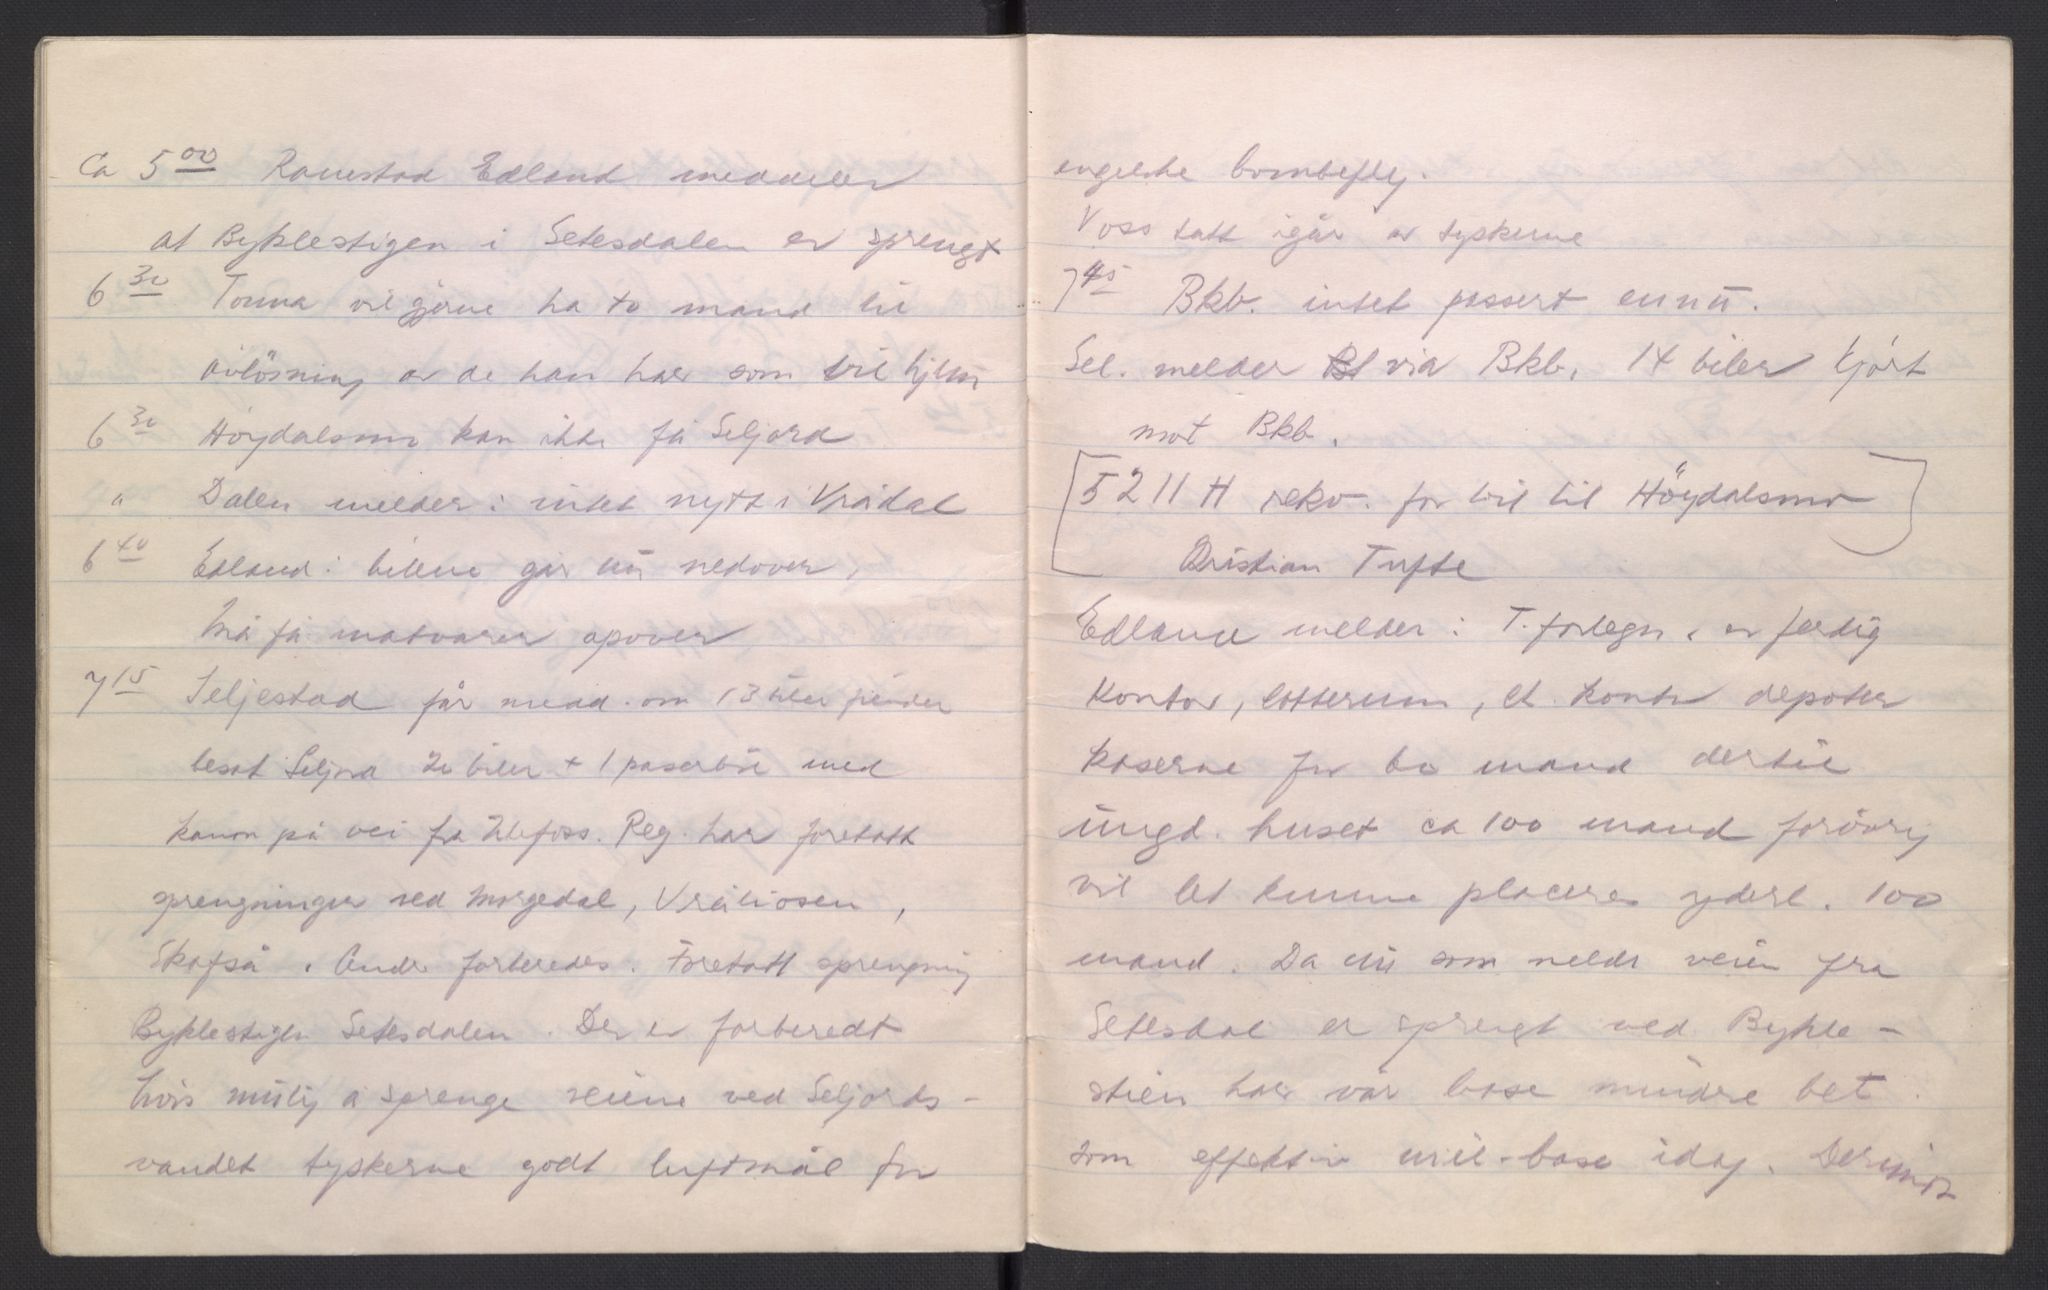 Ca 5 00 Ramstad Edland meddeler
at Byklestigen i Setesdalen er sprengt
6 30 Tonna vil gjerne ha to mand til
avlösning av de han har som vil hjem
6 30 Höydalsmo kan ikke få Seljord
" Dalen melder: intet nytt i Vrådal
6 40 Edland: bilene går nu nedover,
må få matvarer opover
7 15 Seljestad får medd. om 13 biler fiender
besat Seljord 20 biler + 1 paserbil med
kanon på vei fra Ulefoss. Reg. har foretatt
sprengninger ved Morgedal, Vråliosen,
Skafså. Andre forberedes. Foretatt sprengning
Byklestigen Setesdalen. Der er forberedt
hvis mulig å sprenge veiene ved Seljords-
vandet tyskerne godt luftmål for
engelske bombefly.
Voss tatt igår av tyskerne
7 45 Bkb. intet passert ennu.
Sel. melder via Bkb. 14 biler kjört
mot Bkb.
[5211 H rekv. for bil til Höydalsmo]
Kristian Tufte
Edland melder: T. forlegn. er ferdig
Kontor, lotterum, et. kontr depoter
kaserne for 60 mand dertil
ungd. huset ca 100 mand forövrig
vil det kunne placeres yderl. 100
mand. Da nu som meldt veien fra
Setesdal er sprengt ved Bykle-
stien har vår base mindre bet.
som effektiv mil-base idag. Derimot